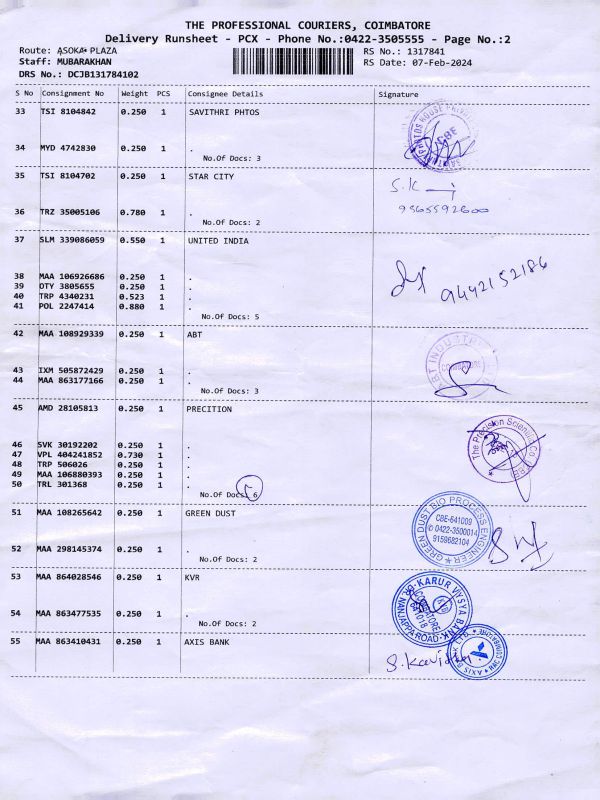 THE PROFESSIONAL COURIERS, COIMBATORE
Delivery Runsheet - PCX - Phone No.:0422-3505555 - Page No.:2
Route: ASOKA PLAZA RS No.: 1317841
Staff: MUBARAKHAN RS Date: 07-Feb-2024
DRS No.: DCJB131784102
S No Consignment No Weight PCS Consignee Details Signature
33 TSI 8104842 0.250 1 SAVITHRI PHTOS
CBE
34 MYD 4742830 0.250 1 .
No.Of Docs: 3
35 TSI 8104702 0.250 1 STAR CITY
S.K
36 TRZ 35005106 0.780 1 .
9365592600
No.Of Docs: 2
37 SLM 339086059 0.550 1 UNITED INDIA
9442152186
38 MAA 106926686 0.250 1 .
39 DTY 3805655 0.250 1 .
40 TRP 4340231 0.523 1 .
41 POL 2247414 0.880 1 .
No.Of Docs: 5
42 MAA 108929339 0.250 1 ABT
43 IXM 505872429 0.250 1 .
44 MAA 863177166 0.250 1 .
No.Of Docs: 3
45 AMD 28105813 0.250 1 PRECITION
The Precision Scientific Co.
46 SVK 30192202 0.250 1 .
47 VPL 404241852 0.730 1 .
48 TRP 506026 0.250 1 .
49 MAA 106880393 0.250 1 .
50 TRL 301368 0.250 1 .
No.Of Docs: 6
51 MAA 108265642 0.250 1 GREEN DUST
GREEN DUST BIO PROCESS ENGINEER
CBE-641009
0422-3500014
9159682104
52 MAA 298145374 0.250 1 .
No.Of Docs: 2
53 MAA 864028546 0.250 1 KVR
KARUR VYSYA BANK
DR. NANJAPPA ROAD
COIMBATORE
641018
54 MAA 863477535 0.250 1 .
No.Of Docs: 2
55 MAA 863410431 0.250 1 AXIS BANK
AXIS BANK LTD